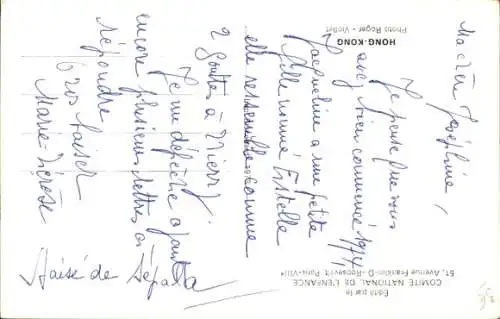 Ma chère Joséphine,
Je pense que vous
avez bien commencé 1974,
Jacqueline a une petite
fille nommé Estelle
elle ressemble comme
2 gouttes à Thierry.
Je me dépêche a j'ai
encore plusieurs lettres a
répondre
Gros baiser
Marie-Thérèse
Baisé de
HONG-KONG
Photo Roger - Viollet
Édité par le
COMITÉ NATIONAL DE L'ENFANCE
51, Avenue Franklin-D.-Roosevelt, Paris-VIIIe